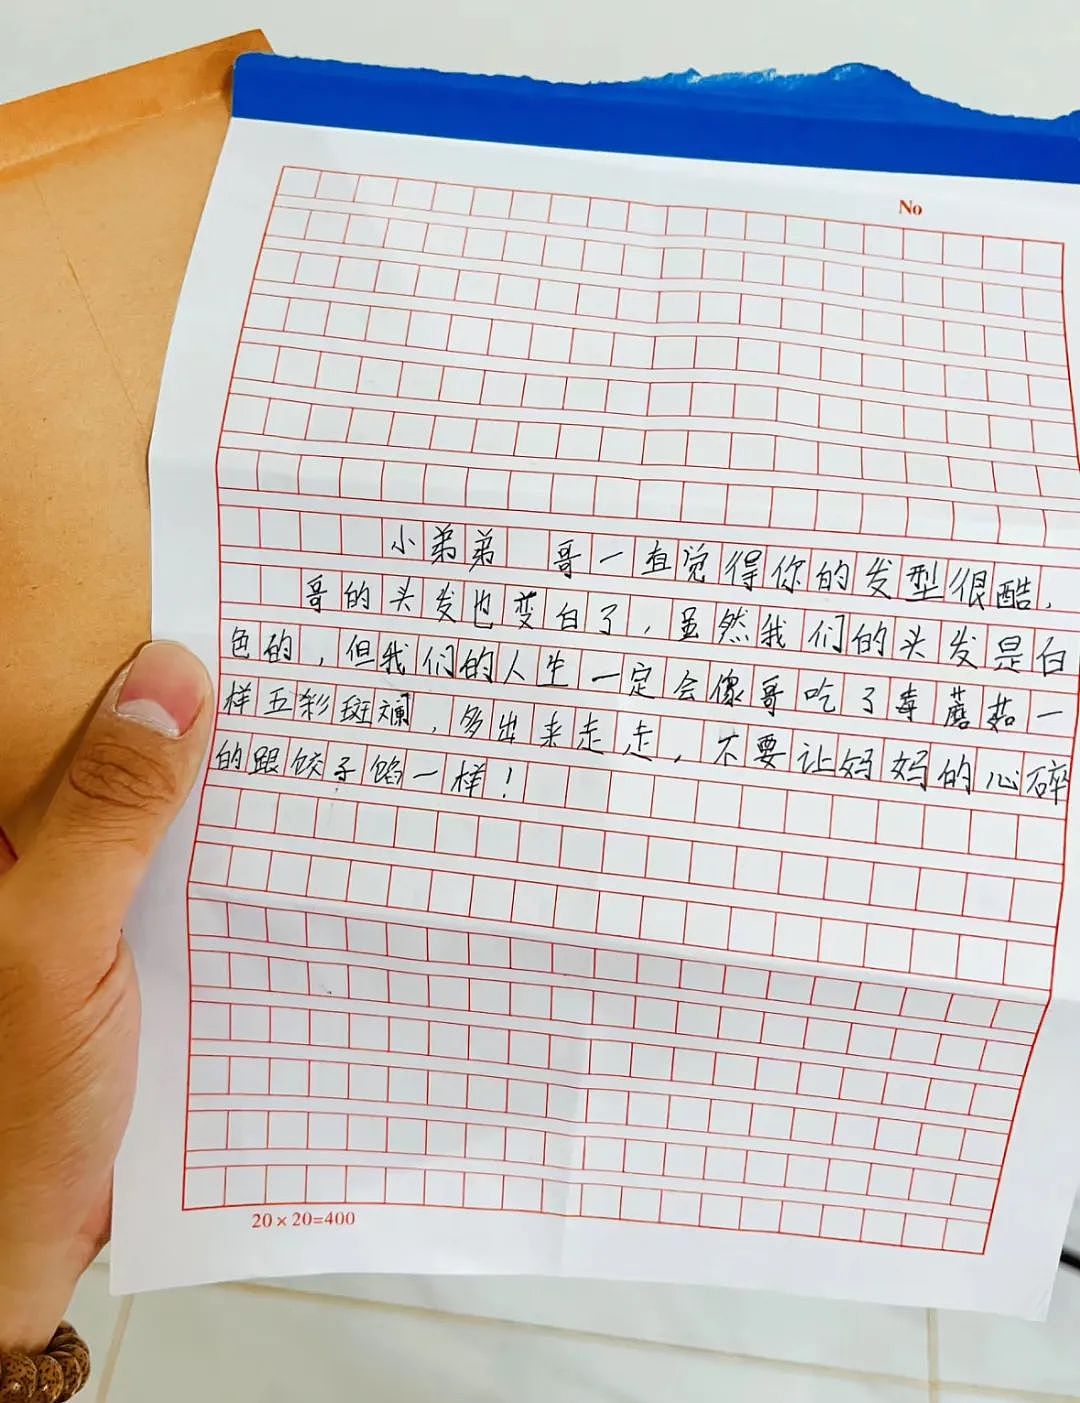 No
小弟弟 哥一直觉得你的发型很酷，
哥的头发也变白了，虽然我们的头发是白
色的，但我们的人生一定会像哥吃了毒蘑菇一
样五彩斑斓，多出来走走，不要让妈妈的心碎
的跟饺子馅一样！
20×20=400